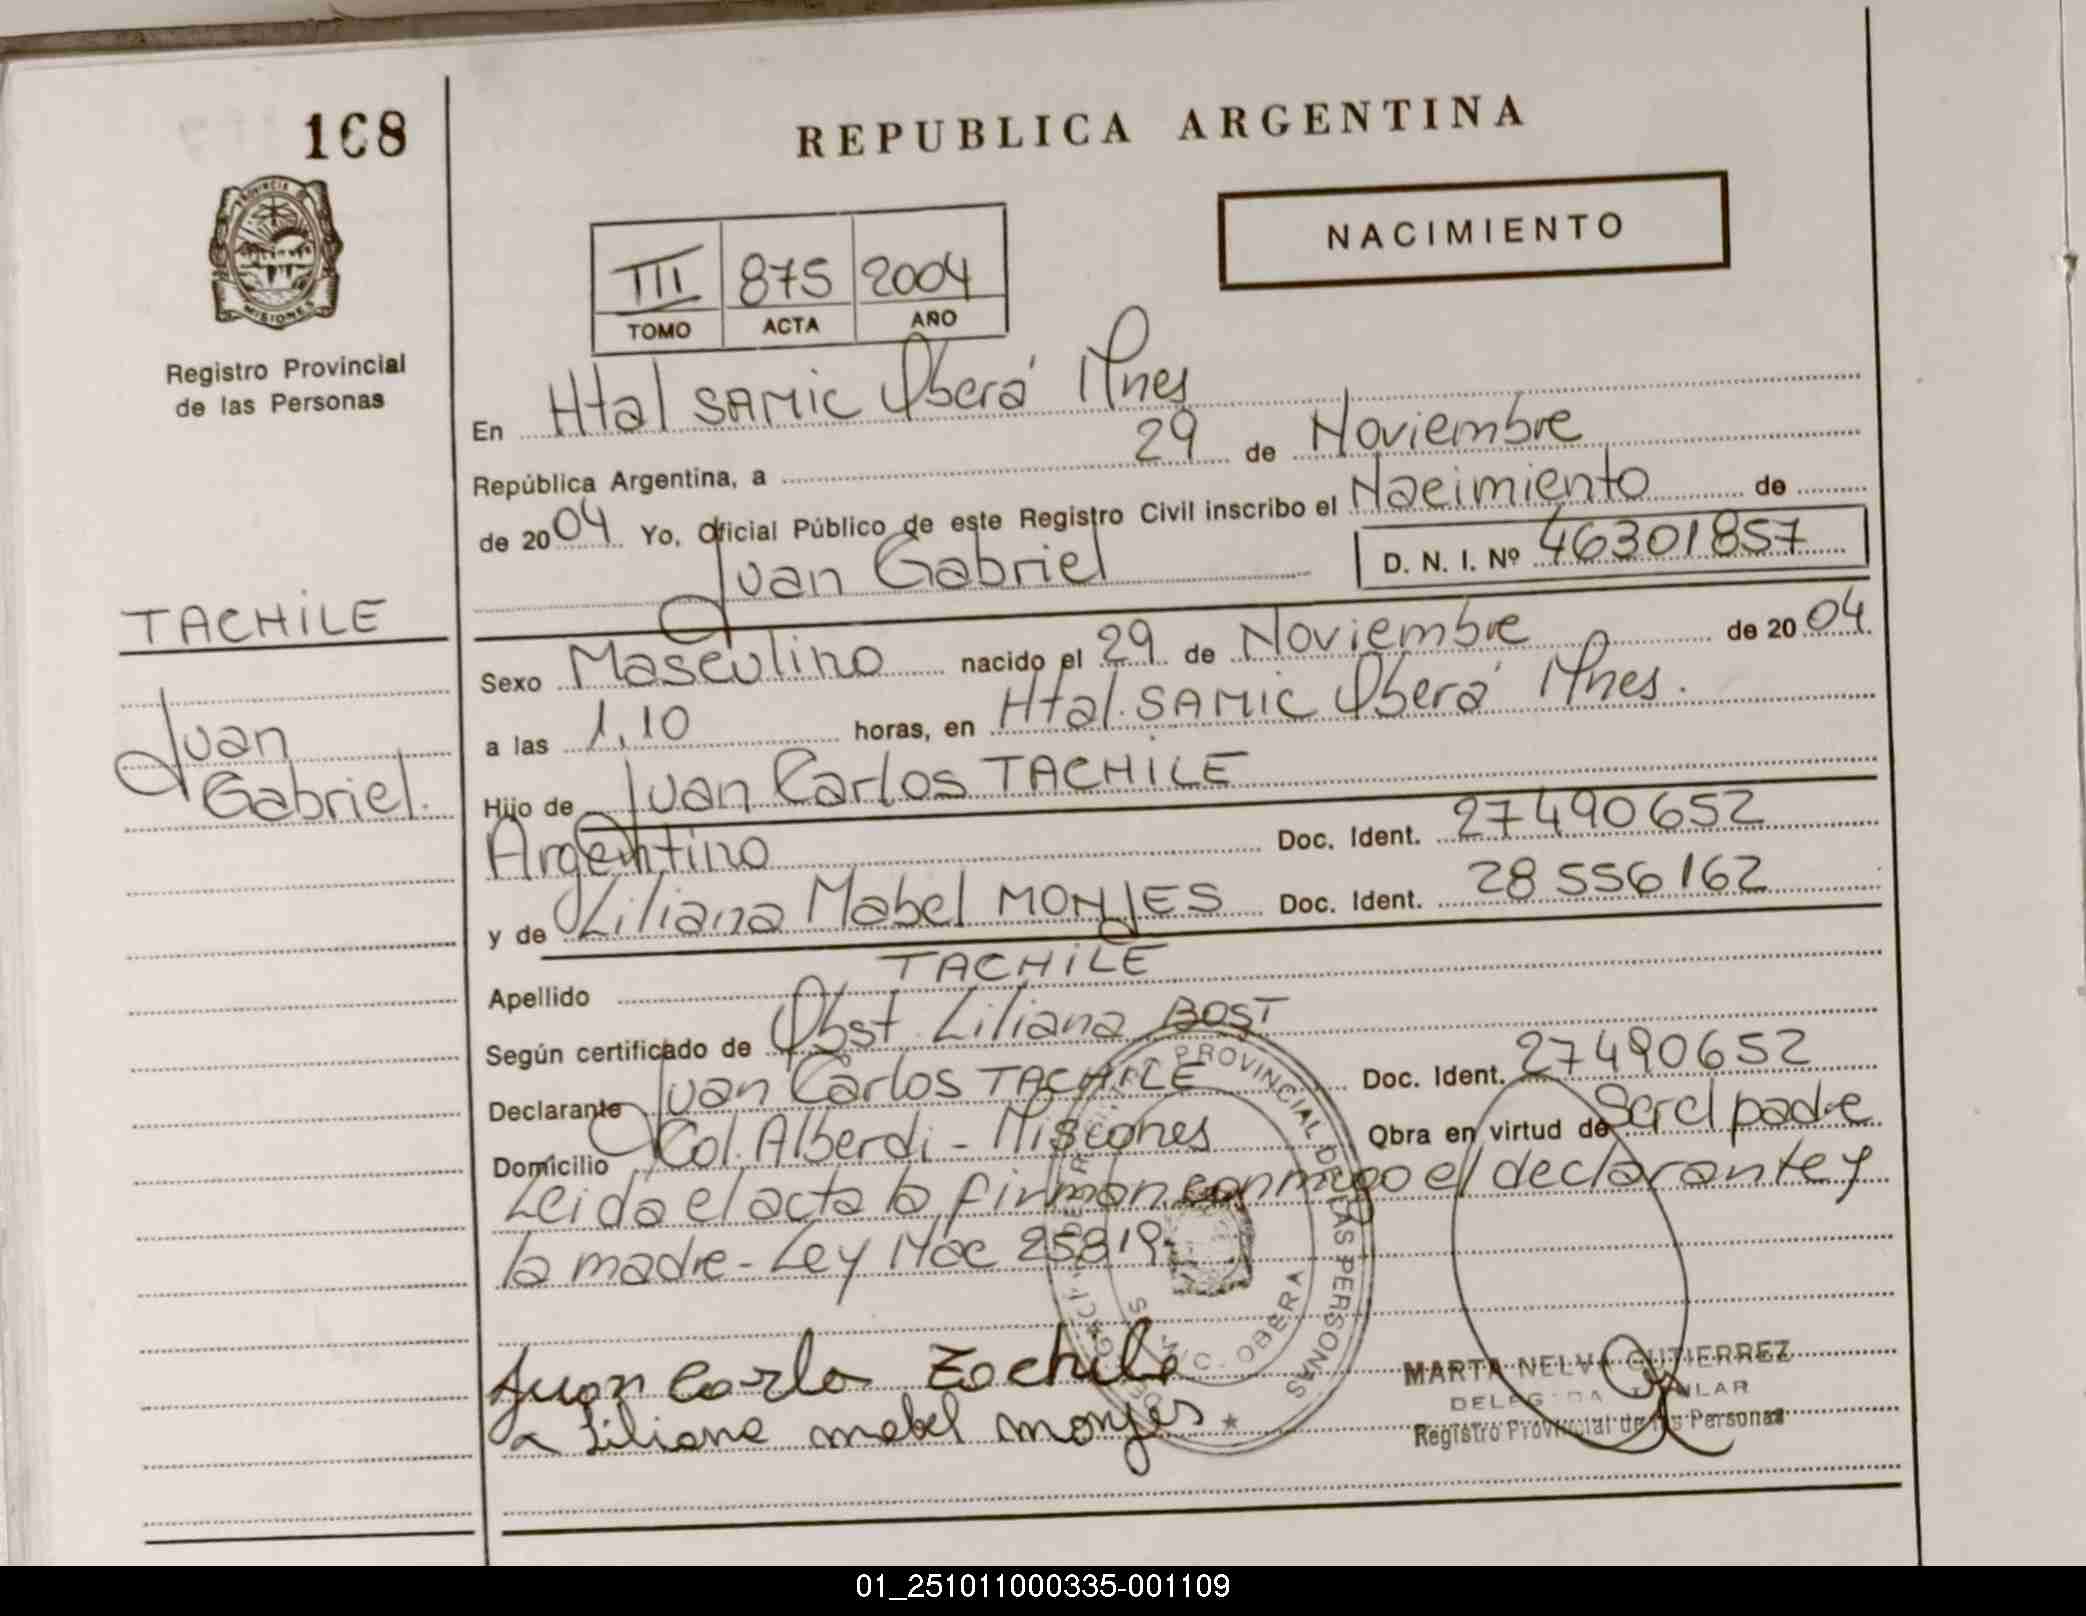 168
REPUBLICA ARGENTINA
PROVINCIA DE
MISIONES
NACIMIENTO
III 875 2004
TOMO ACTA AÑO
Registro Provincial
de las Personas
En Htal SAMIC Oberá Mnes
República Argentina, a 29 de Noviembre
de 2004 Yo, Oficial Público de este Registro Civil inscribo el Nacimiento de
Juan Gabriel D. N. I. Nº 46301857
TACHILE
Juan
Gabriel.
Sexo Masculino nacido el 29 de Noviembre de 2004
a las 1,10 horas, en Htal. SAMIC Oberá Mnes.
Hijo de Juan Carlos TACHILE
Argentino Doc. Ident. 27490652
y de Liliana Mabel MONJES Doc. Ident. 28556162
Apellido TACHILE
Según certificado de Obst. Liliana BOST
Declarante Juan Carlos TACHILE Doc. Ident. 27490652
Domicilio Col. Alberdi - Misiones Obra en virtud de Ser el padre
Leida el acta la firman conmigo el declarante y
la madre - Ley Nac 25819-
PROVINCIAL DE LAS PERSONAS
OBERA
Juan Carlo Tachile
Liliana mabel monjes
MARTA NELVA GUTIERREZ
DELEGADA TITULAR
Registro Provincial de las Personas
01_251011000335-001109